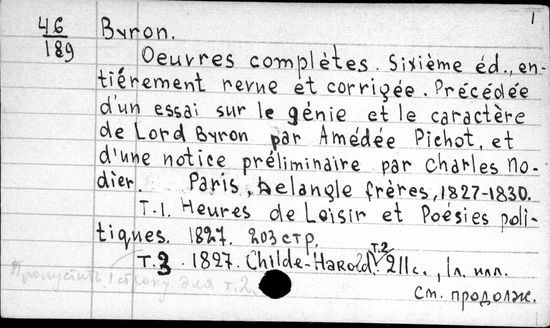 1
46
189
Byron.
Oeuvres complètes. Sixième éd., en-
tièrement revue et corrigée. Précédée
d'un essai sur le génie et le caractère
de Lord Byron par Amédée Pichot, et
d'une notice préliminaire par Charles No-
dier. Paris, Delangle frères, 1827-1830.
T.1. Heures de Loisir et Poésies poli-
tiques. 1827. 203 стр.
T.3. 1827. Childe-Harold. T.2 211с., 1л. илл.
Пропустить 1 строку для т.2.
См. продолж.